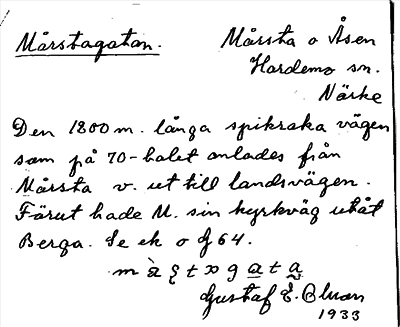 Mårstagatan.
Mårsta o Åsen
Hardemo sn.
Närke
Den 1800 m. långa spikraka vägen
som på 70-talet anlades från
Mårsta v. ut till landsvägen.
Förut hade M. sin kyrkväg utåt
Berga. Se ek o G 64.
Gustaf E.
1933